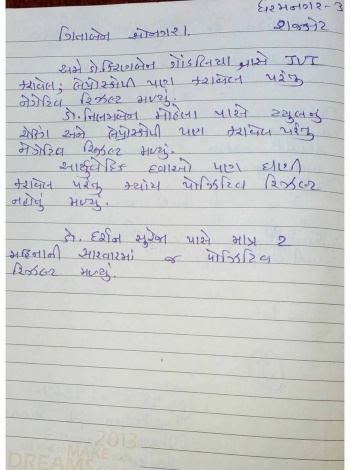 ધરમનગર-૩
રાજકોટ
ગિતાબેન સોનગરા.
અમે ડો. કિરણબેન ગોંડલિયા પાસે IVF
કરાવેલ; લેપ્રોસ્કોપી પણ કરાવેલ પરંતુ
નેગેટિવ રિઝલ્ટ મળ્યું.
ડો. નિલમબેન મોહેલા પાસે ટ્યુબનું
ચેકિંગ અને લેપ્રોસ્કોપી પણ કરાવેલ પરંતુ
નેગેટિવ રિઝલ્ટ મળ્યું.
આયુર્વેદિક દવાઓ પણ ઘણી
કરાવેલ પરંતુ ક્યાંય પોઝિટિવ રિઝલ્ટ
નહોતું મળ્યું.
ડો. દર્શન સુરેજા પાસે માત્ર 2
મહિનાની સારવારમાં જ પોઝિટિવ
રિઝલ્ટ મળ્યું.
2013
MAKE
DREAMS